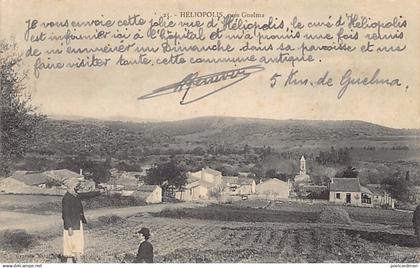 23. - HELIOPOLIS, près Guelma
Je vous envoie cette jolie vue d'Héliopolis, le curé d'Héliopolis
est infirmier ici à l'hôpital et m'a promis une fois remis
de m'emmener un Dimanche dans sa paroisse et me
faire visiter toute cette commune antique.
5 Km. de Guelma.
www.delcampe.net
cardman